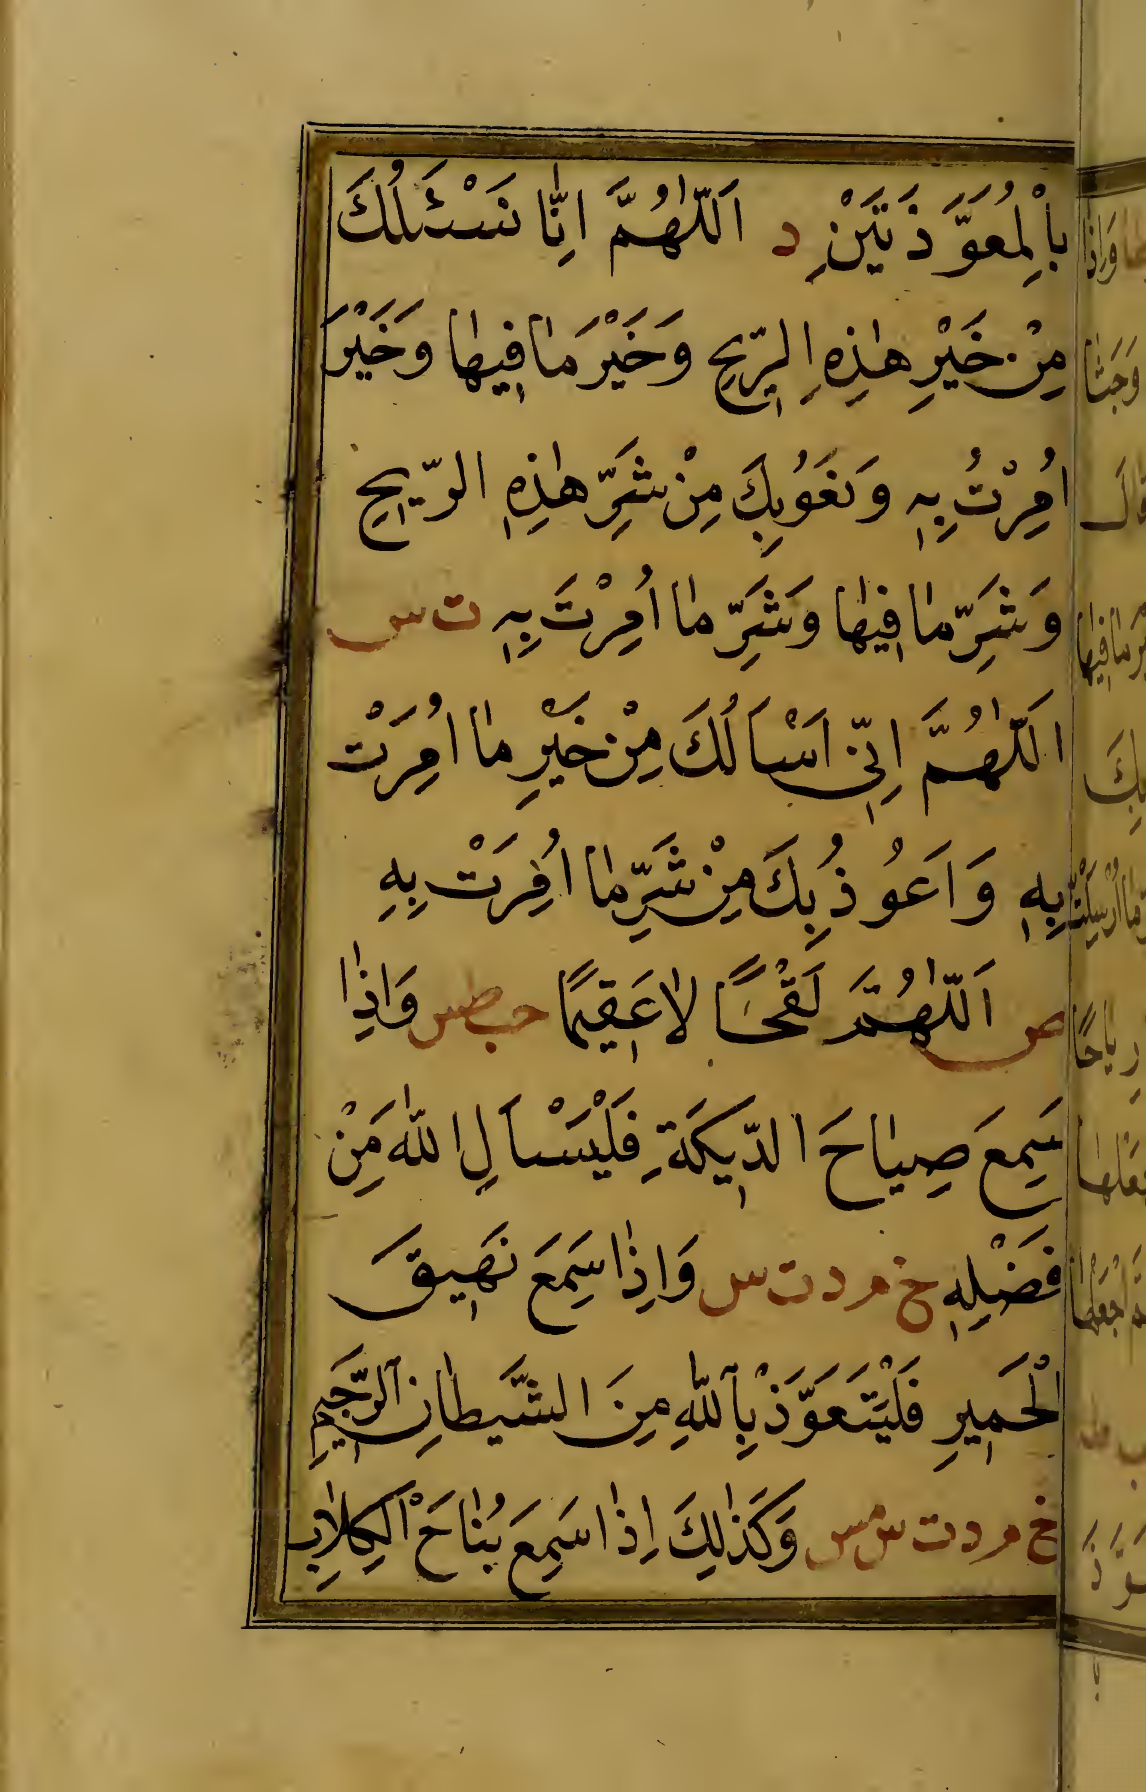 بِالْمُعَوِّذَتَيْنِ د اَللّٰهُمَّ اِنَّا نَسْئَلُكَ
مِنْ خَيْرِ هٰذِهِ الرِّيحِ وَخَيْرَ مٰا فِيهٰا وَخَيْرَ
اُمِرْتُ بِهِ وَنَعُوبِكَ مِنْ شَرِّ هٰذِهِ الرِّيحِ
وَشَرِّ مٰا فِيهٰا وَشَرِّ مٰا اُمِرْتَ بِهِ ت س
اَللّٰهُمَّ اِنِّي اَسْاَلُكَ مِنْ خَيْرِ مٰا اُمِرَتْ
بِهِ وَاَعُوذُ بِكَ مِنْ شَرِّ مٰا اُمِرَتْ بِهِ
ص اَللّٰهُمَّ لَقْحًا لاٰ عَقِيمًا حب طس وَاِذٰا
سَمِعَ صِيٰاحَ الدِّيكَةِ فَلْيَسْاَلِ اللّٰهَ مِنْ
فَضْلِهِ خ م د ت س وَاِذٰا سَمِعَ نَهِيقَ
الْحَمِيرِ فَلْيَتَعَوَّذْ بِاللّٰهِ مِنَ الشَّيطٰانِ الرَّجِيمِ
خ م د ت س مس وَكَذٰلِكَ اِذٰا سَمِعَ نُبٰاحَ الْكِلاٰبِ